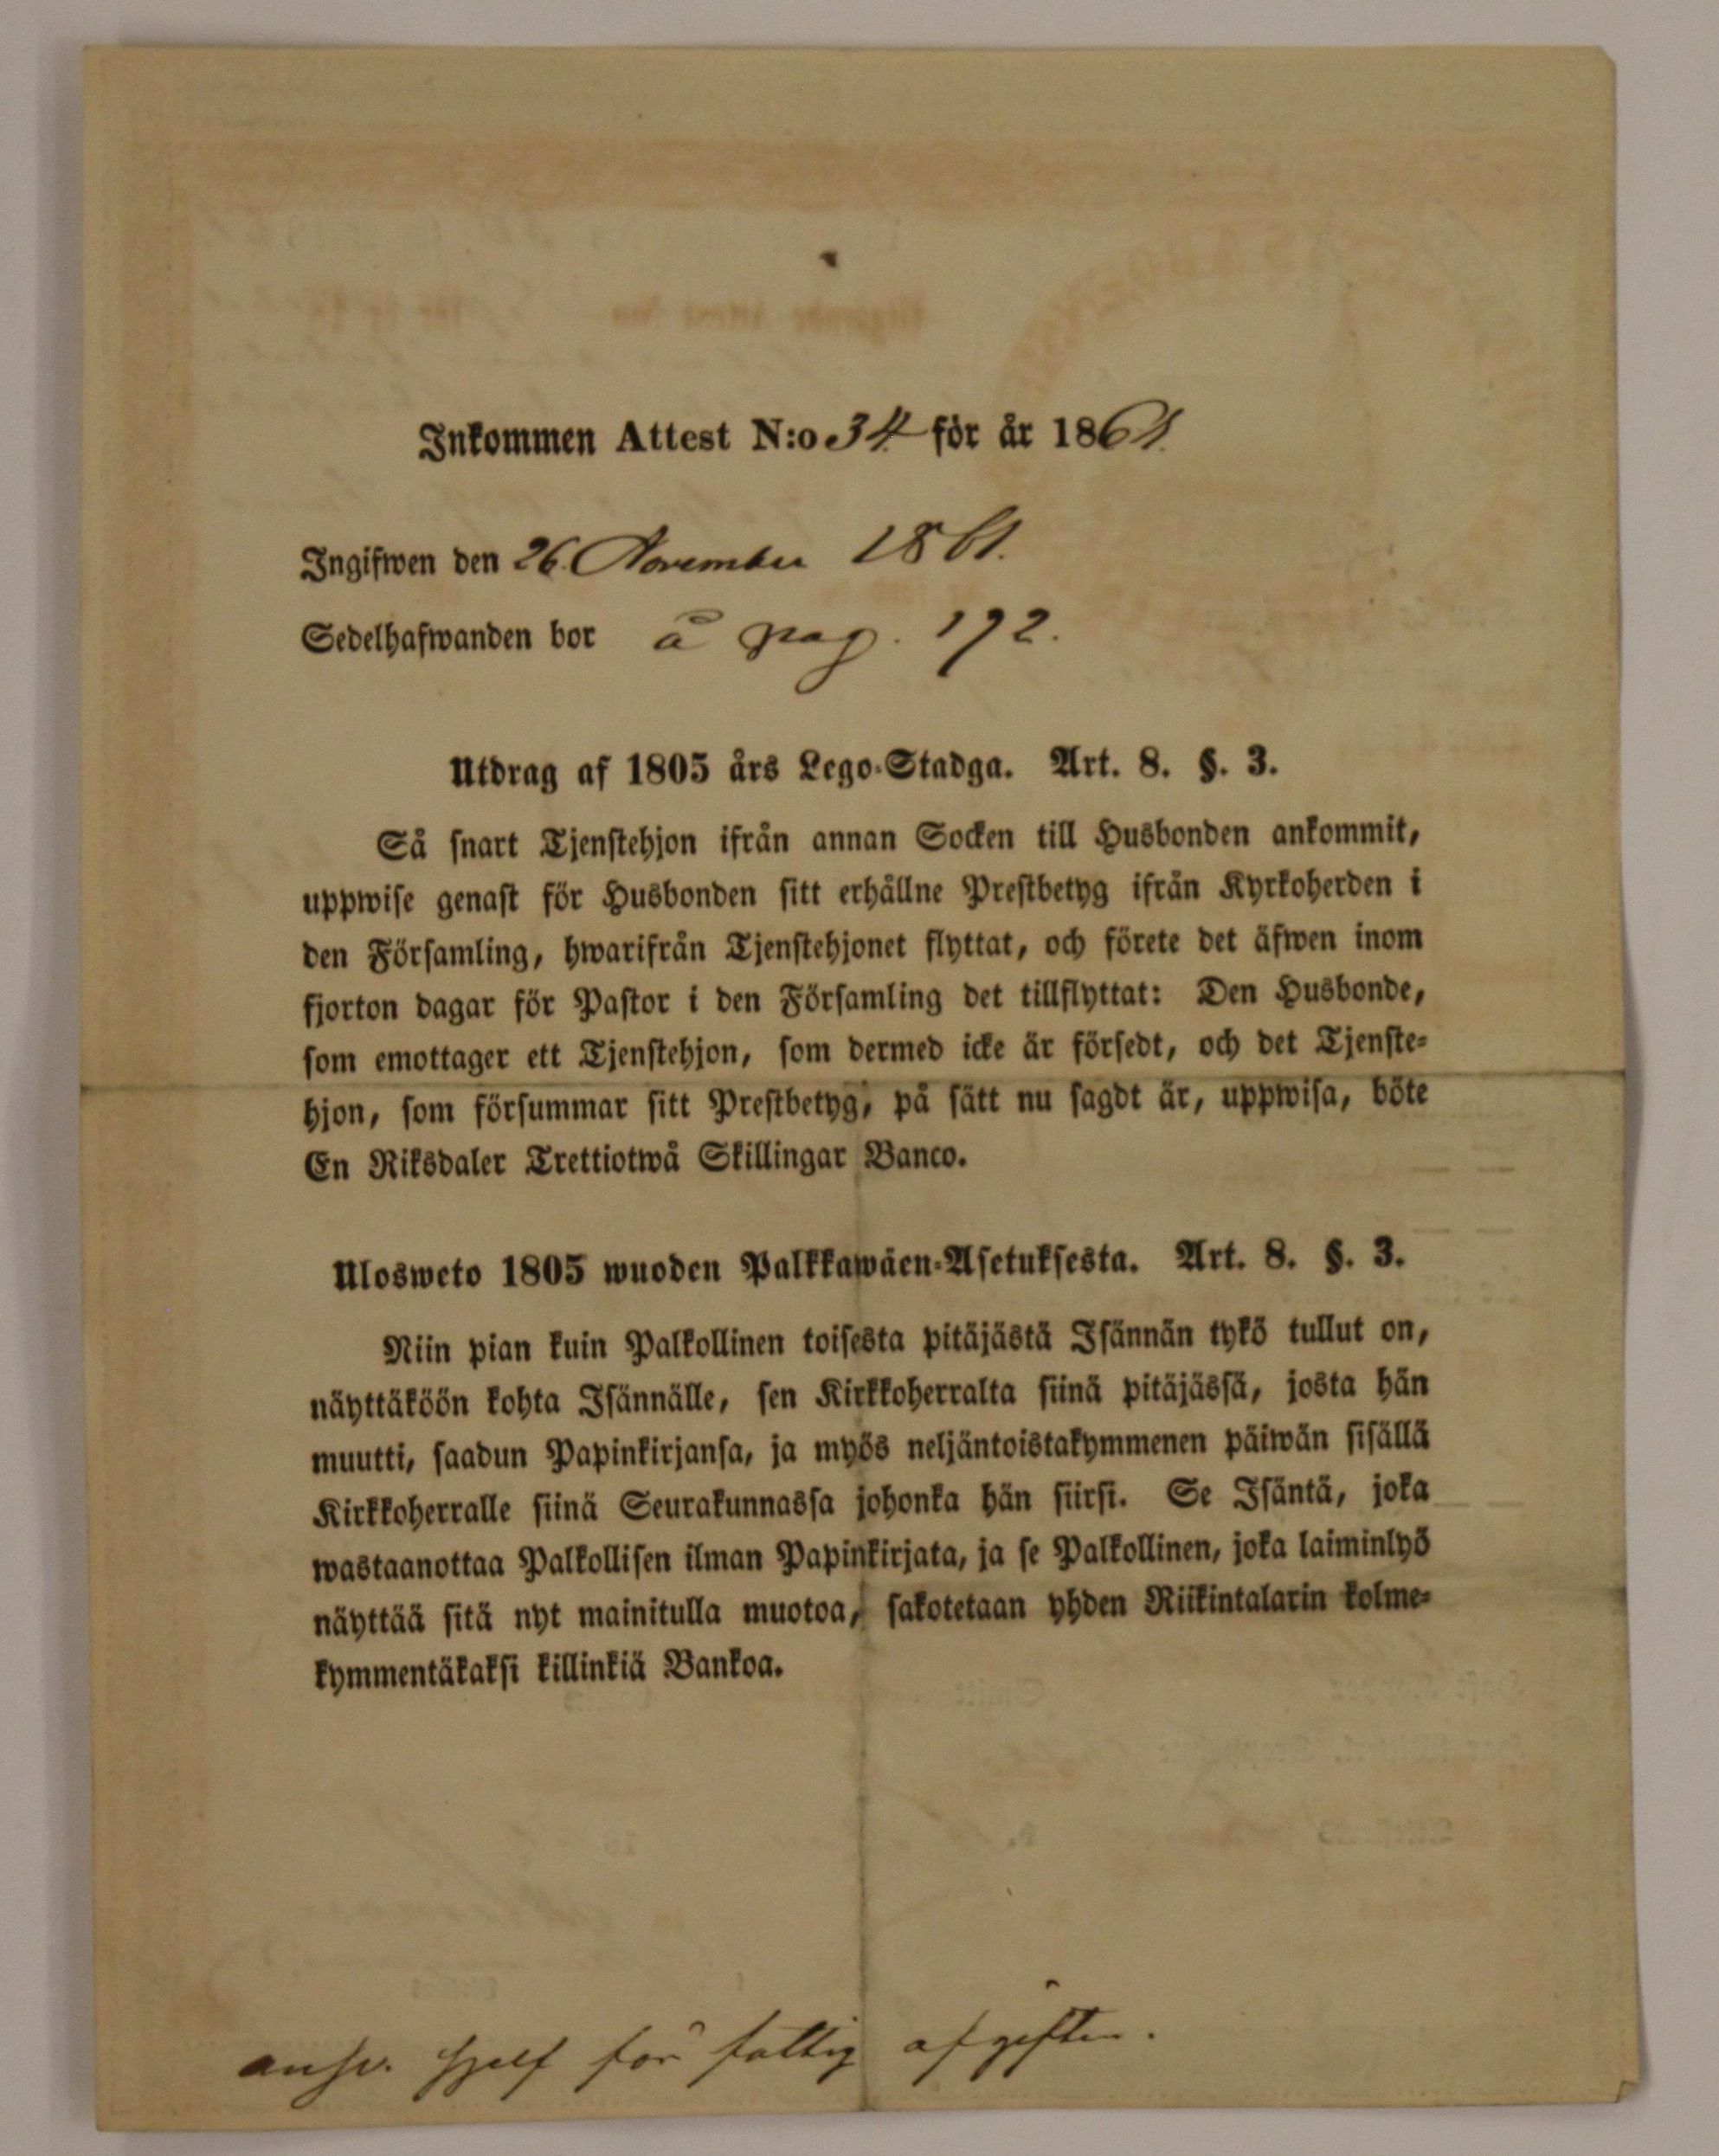 Inkommen Attest N:o 34 för år 1861.
Ingifwen den 26 November 1861.
Sedelhafwanden bor å pag. 192.
Utdrag af 1805 års Lego-Stadga. Art. 8. §. 3.
Så snart Tjenstehjon ifrån annan Socken till Husbonden ankommit,
uppwise genast för Husbonden sitt erhållne Prestbetyg ifrån Kyrkoherden i
den Församling, hwarifrån Tjenstehjonet flyttat, och förete det äfwen inom
fjorton dagar för Pastor i den Församling det tillflyttat: Den Husbonde,
som emottager ett Tjenstehjon, som dermed icke är försedt, och det Tjenste-
hjon, som försummar sitt Prestbetyg, på sätt nu sagdt är, uppwisa, böte
En Riksdaler Trettiotwå Skillingar Banco.
Ulosweto 1805 wuoden Palkkawäen-Asetuksesta. Art. 8. §. 3.
Niin pian kuin Palkollinen toisesta pitäjästä Isännän tykö tullut on,
näyttäköön kohta Isännälle, sen Kirkkoherralta siinä pitäjässä, josta hän
muutti, saadun Papinkirjansa, ja myös neljäntoistakymmenen päiwän sisällä
Kirkkoherralle siinä Seurakunnassa johonka hän siirsi. Se Isäntä, joka
wastaanottaa Palkollisen ilman Papinkirjata, ja se Palkollinen, joka laiminlyö
näyttää sitä nyt mainitulla muotoa, sakotetaan yhden Riikintalarin kolme-
kymmentäkaksi killinkiä Bankoa.
ansv. sjelf för fattig afgiften.